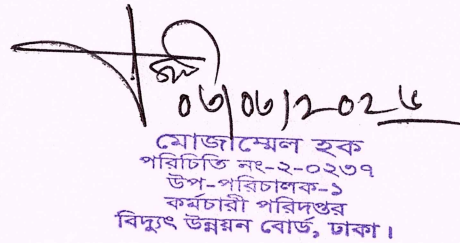 ০৩/০৩/২০২৬
মোজাম্মেল হক
পরিচিতি নং-২-০২৩৭
উপ-পরিচালক-১
কর্মচারী পরিদপ্তর
বিদ্যুৎ উন্নয়ন বোর্ড, ঢাকা।